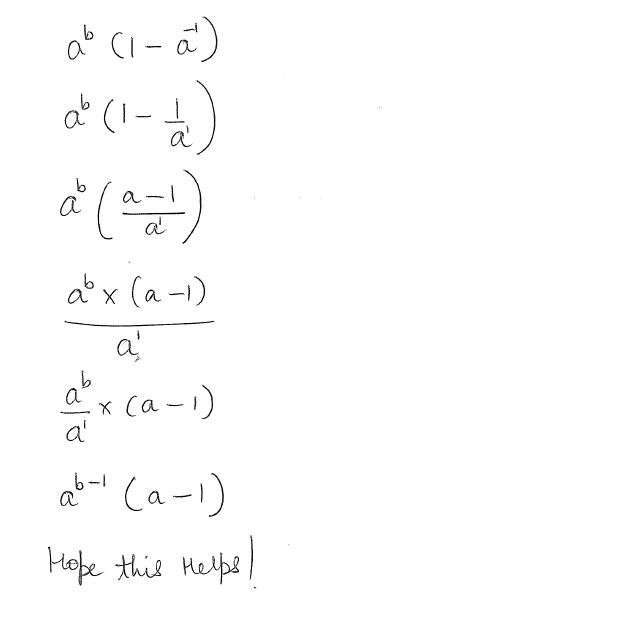 a^b (1 - a^-1)
a^b (1 - 1/a^1)
a^b ((a-1)/a^1)
(a^b × (a-1))/a^1
a^b/a^1 × (a-1)
a^b-1 (a-1)
Hope this Helps!